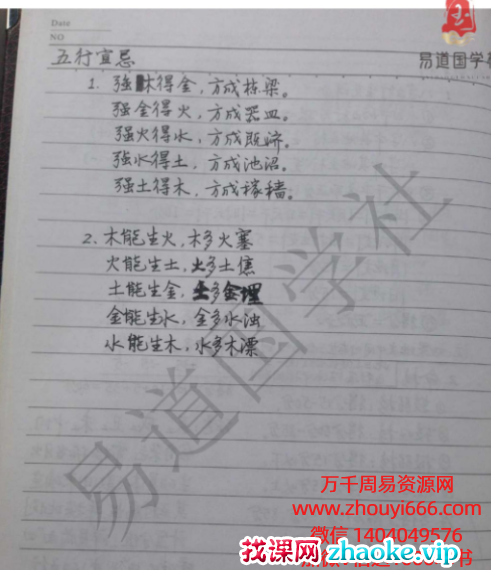 Date
NO
易道国学
五行宜忌
1. 强木得金，方成栋梁。
强金得火，方成器皿。
强火得水，方成既济。
强水得土，方成池沼。
强土得木，方成稼穑。
2. 木能生火，木多火塞
火能生土，火多土焦
土能生金，土多金埋
金能生水，金多水浊
水能生木，水多木漂
易道国学社
万千周易资源网
www.zhouyi666.com
微信 1404049576
找课网zhaoke.vip